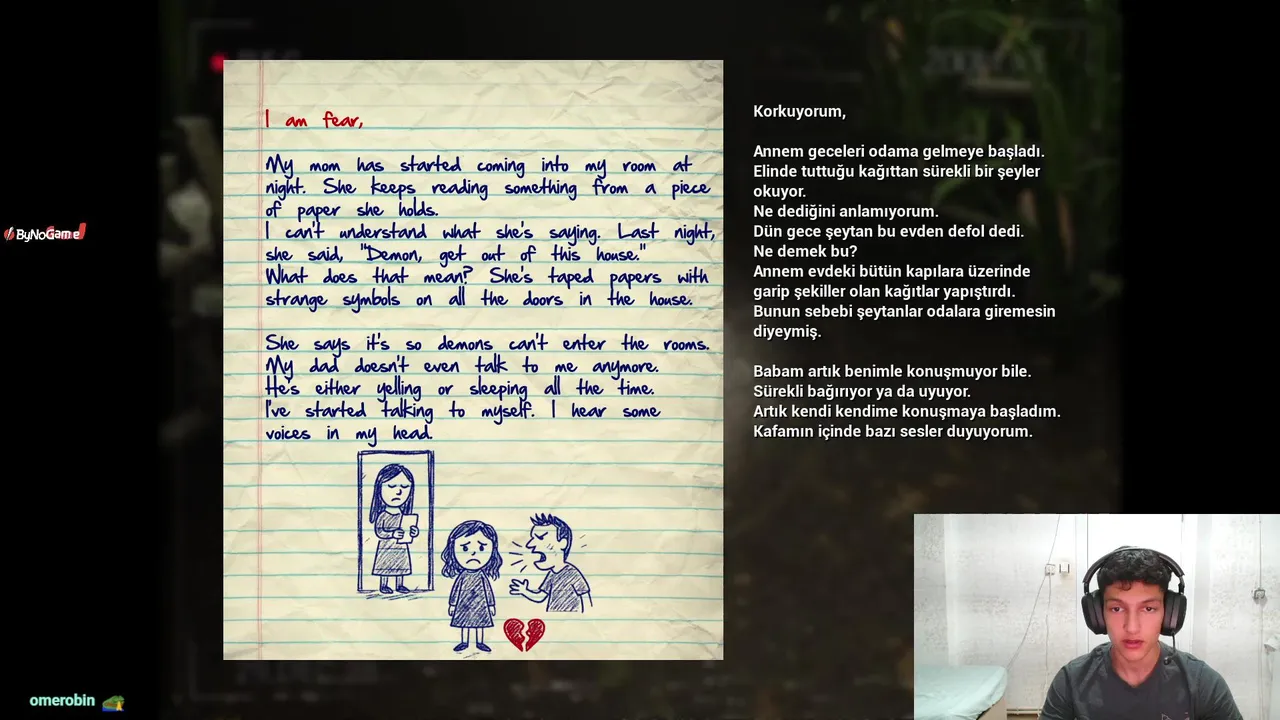 I am fear,
My mom has started coming into my room at
night. She keeps reading something from a piece
of paper she holds.
I can't understand what she's saying. Last night,
she said, "Demon, get out of this house."
What does that mean? She's taped papers with
strange symbols on all the doors in the house.
She says it's so demons can't enter the rooms.
My dad doesn't even talk to me anymore.
He's either yelling or sleeping all the time.
I've started talking to myself. I hear some
voices in my head.
Korkuyorum,
Annem geceleri odama gelmeye başladı.
Elinde tuttuğu kağıttan sürekli bir şeyler
okuyor.
Ne dediğini anlamıyorum.
Dün gece şeytan bu evden defol dedi.
Ne demek bu?
Annem evdeki bütün kapılara üzerinde
garip şekiller olan kağıtlar yapıştırdı.
Bunun sebebi şeytanlar odalara giremesin
diyeymiş.
Babam artık benimle konuşmuyor bile.
Sürekli bağırıyor ya da uyuyor.
Artık kendi kendime konuşmaya başladım.
Kafamın içinde bazı sesler duyuyorum.
ByNoGame
omerobin